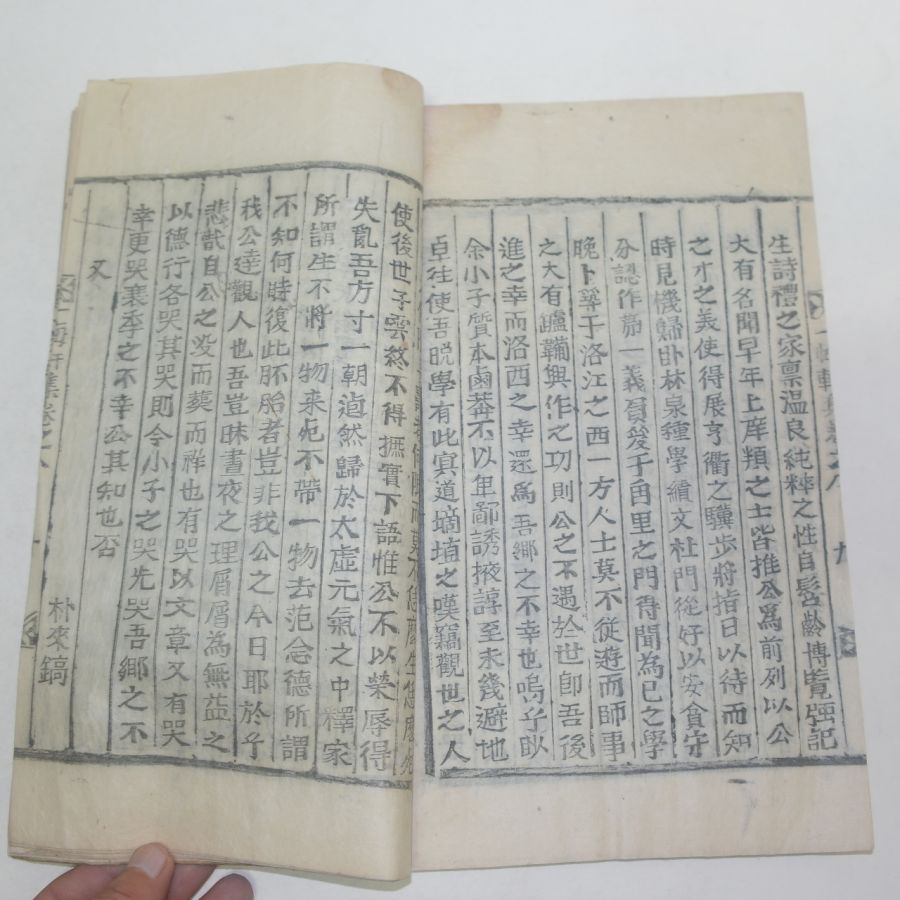 生詩禮之家禀温良純粹之性自髫齡博覽强記
大有名聞早年上庠類之士皆推公爲前列以公
之才之義使得展亨衢之驥步將指日以待而知
時見機歸卧林泉種學績文杜門從好以安貧守
分認作第一義負笈于角里之門得聞爲己之學
晚卜築于洛江之西一方人士莫不從遊而師事
之大有鑪鞴興作之功則公之不遇於世卽吾後
進之幸而洛西之幸還爲吾鄉之不幸也嗚乎
余小子質本鹵莽不以卑鄙誘掖諄至未幾避地
卓往使吾晚學有此冥道墑埴之嘆竊觀世之人
使後世子雲終不得撫實下語惟公不以榮辱得
失亂吾方寸一朝逌然歸於太虛元氣之中釋家
所謂生不將一物來死不帶一物去范念德所謂
不知何時復此胚胎者豈非我公之今日耶於乎
我公達觀人也吾豈昧晝夜之理屑屑為無益之
悲哉自公之沒而葬而祥也有哭以文章又有哭
以德行各哭其哭則今小子之哭先哭吾鄉之不
幸更哭衰季之不幸公其知也否
又
朴來鎬
集卷之八